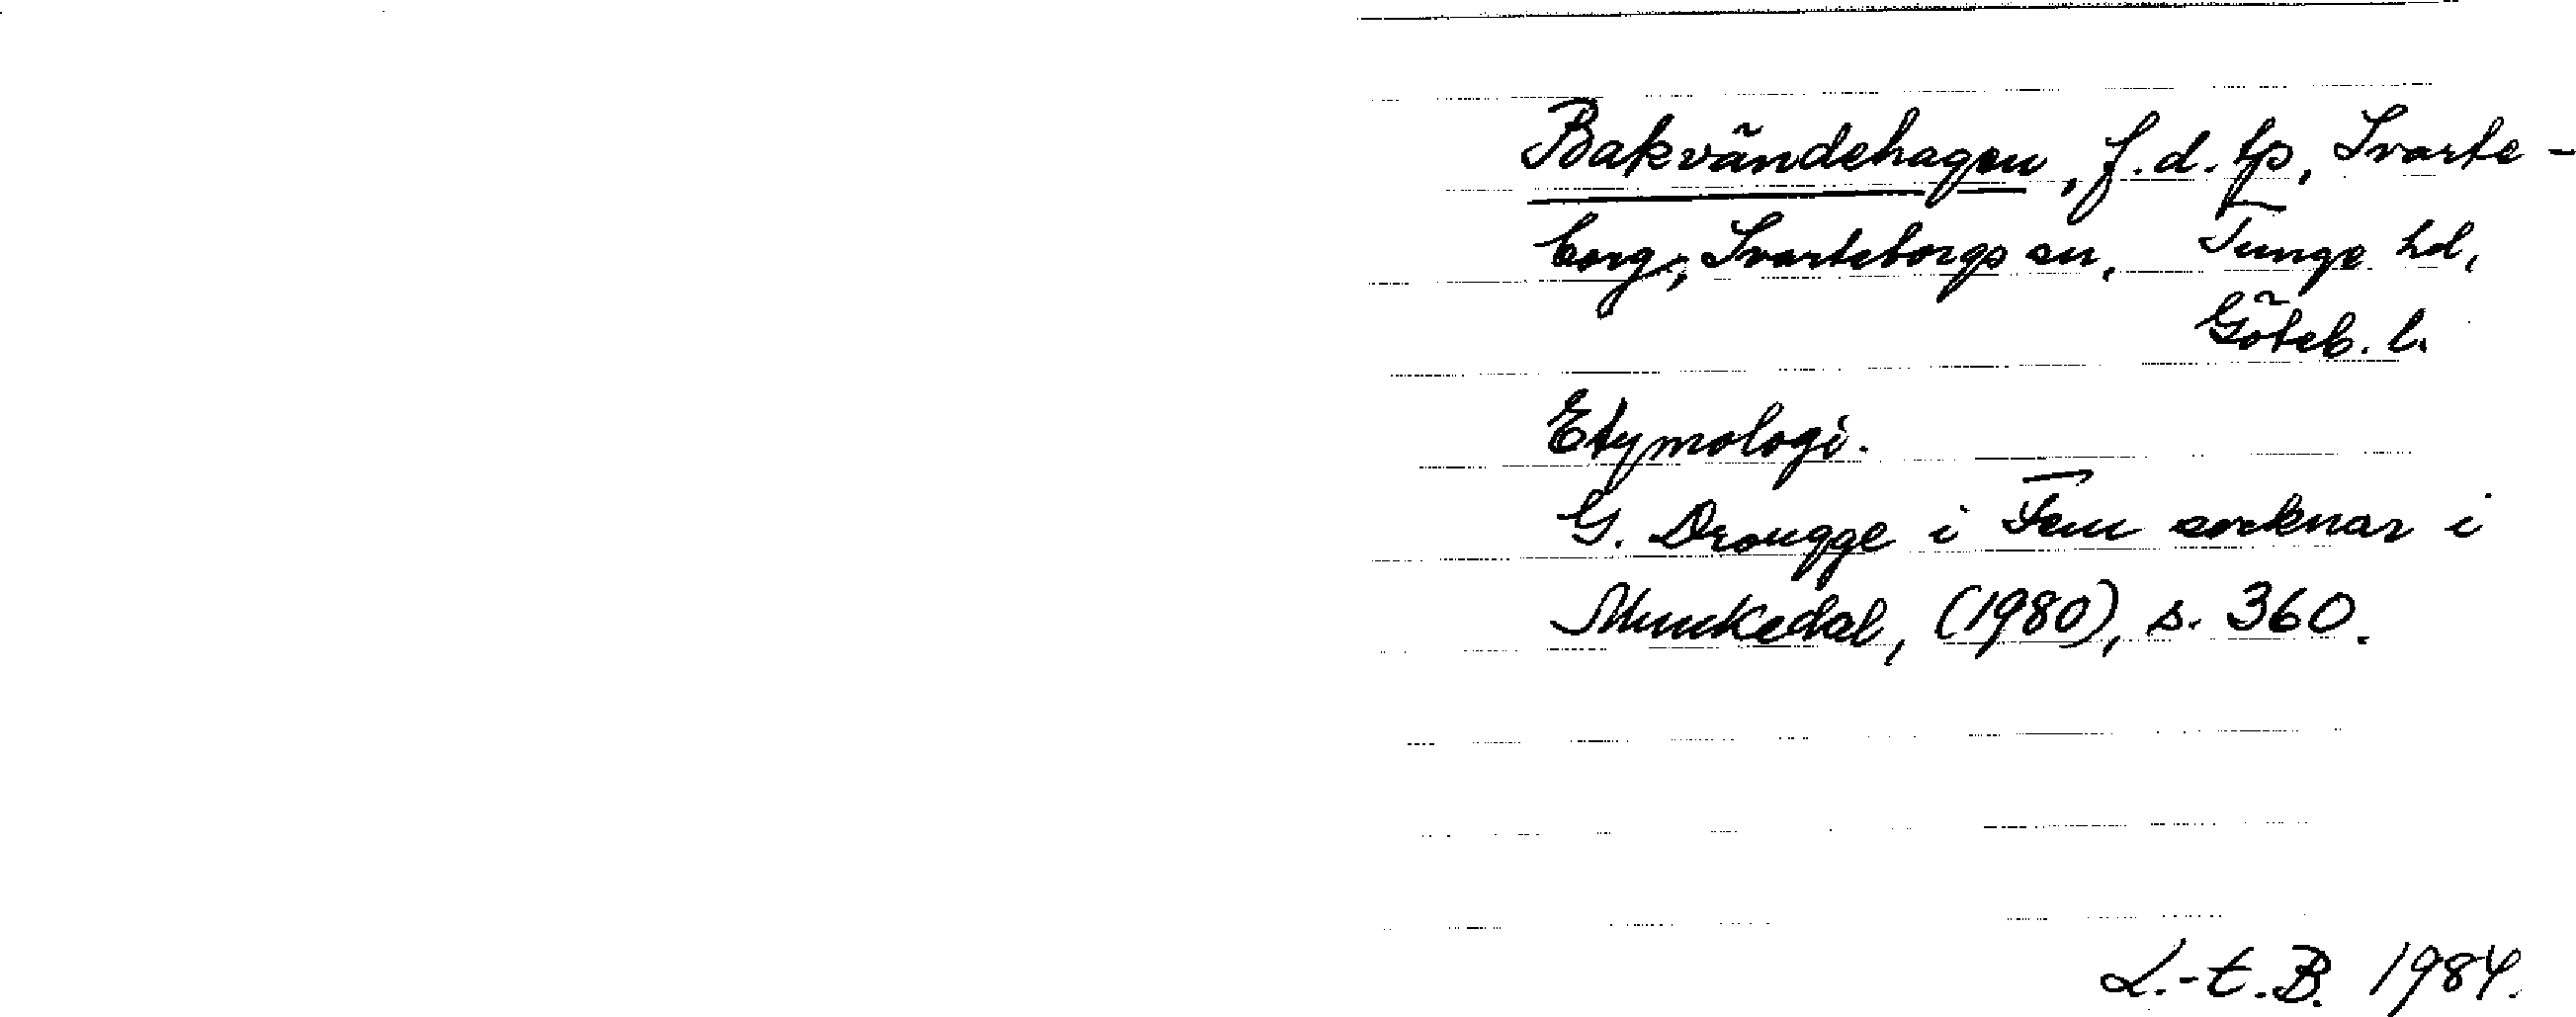 Bakvändehagen, f.d. tp, Svarte-
borg, Svarteborgs sn, Tunge hd,
Göteb. l.
Etymologi.
G. Drougge i Fem socknar i
Munkedal, (1980), s. 360.
L.-E.B. 1984.